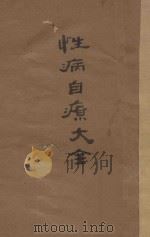 性病自療大全
www.mtoou.info